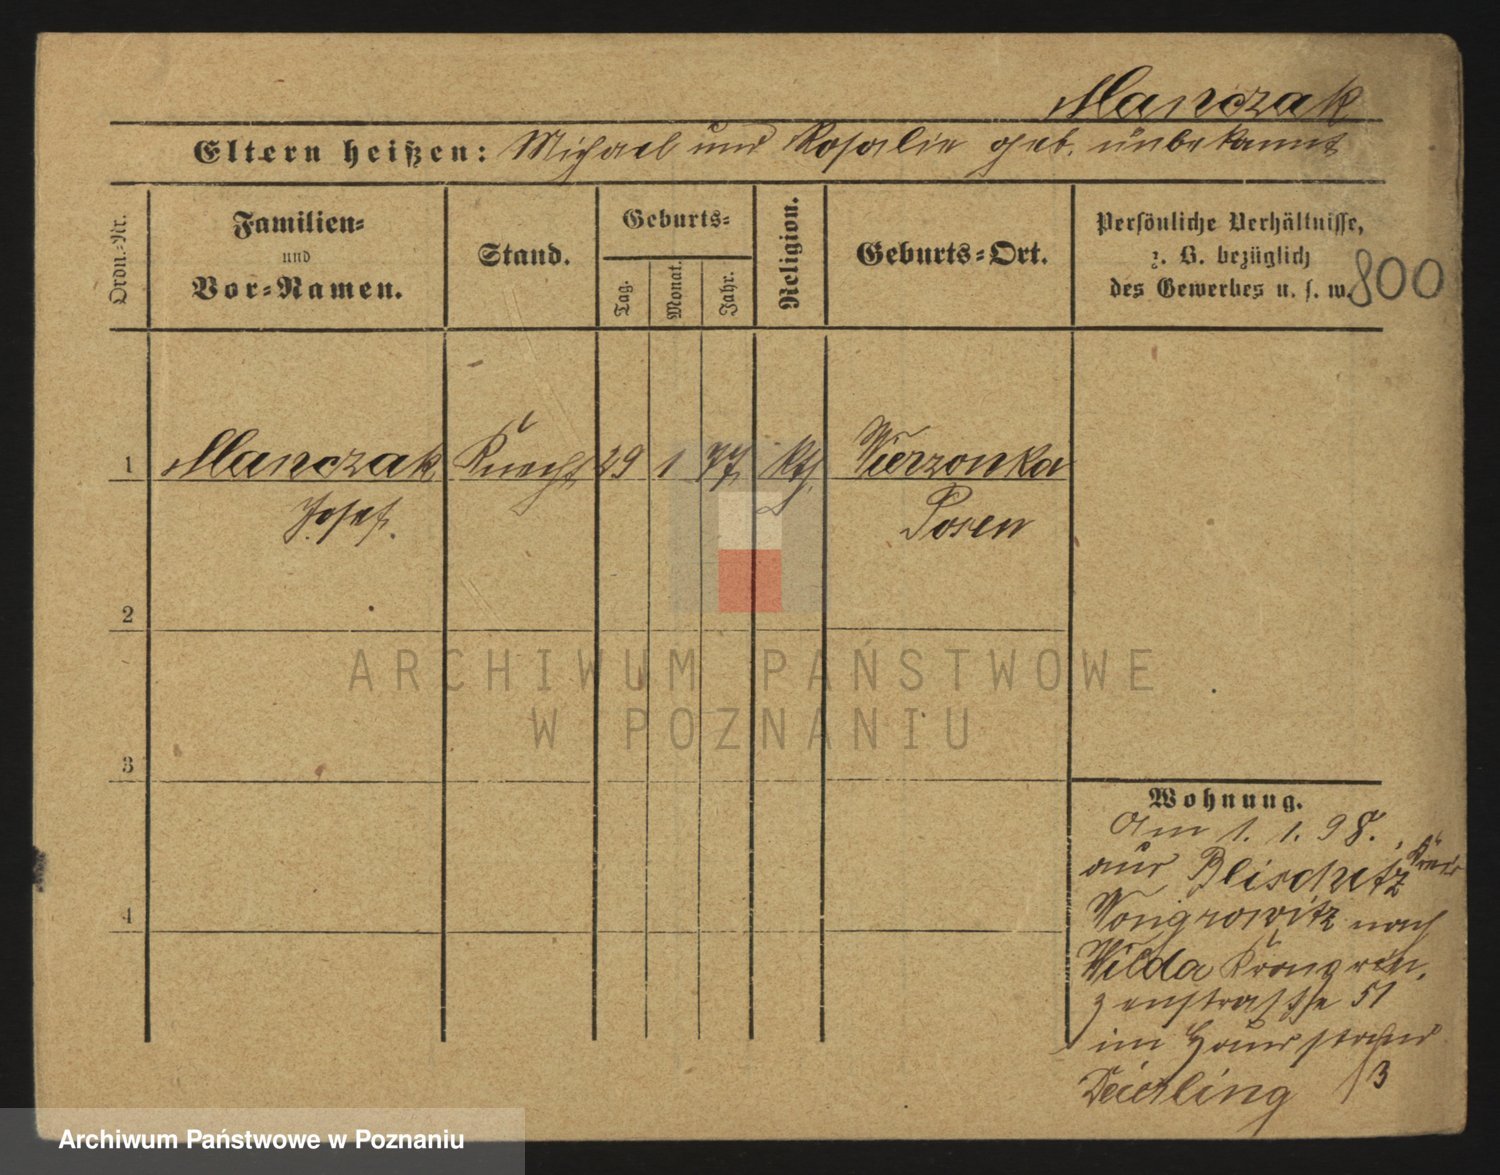 Manczak
Eltern heißen: Michael und Rosalie geb. unbekannt
Ordn.-Nr.
Familien-
und
Vor-Namen.
Stand.
Geburts-
Tag.
Monat.
Jahr.
Religion.
Geburts-Ort.
Persönliche Verhältnisse,
z. B. bezüglich
des Gewerbes u. s. w.
800
1 Manczak Knecht 29 1 77 kth. Wierzonka
Josef. Posen
2
3
4
ARCHIWUM PAŃSTWOWE
W POZNANIU
Wohnung.
Am 1. 1. 98.
aus Blischitz Kreis
Wongrowitz nach
Wilda Kronprin,
zenstraße 51
im Hause
Deierling 13
Archiwum Państwowe w Poznaniu